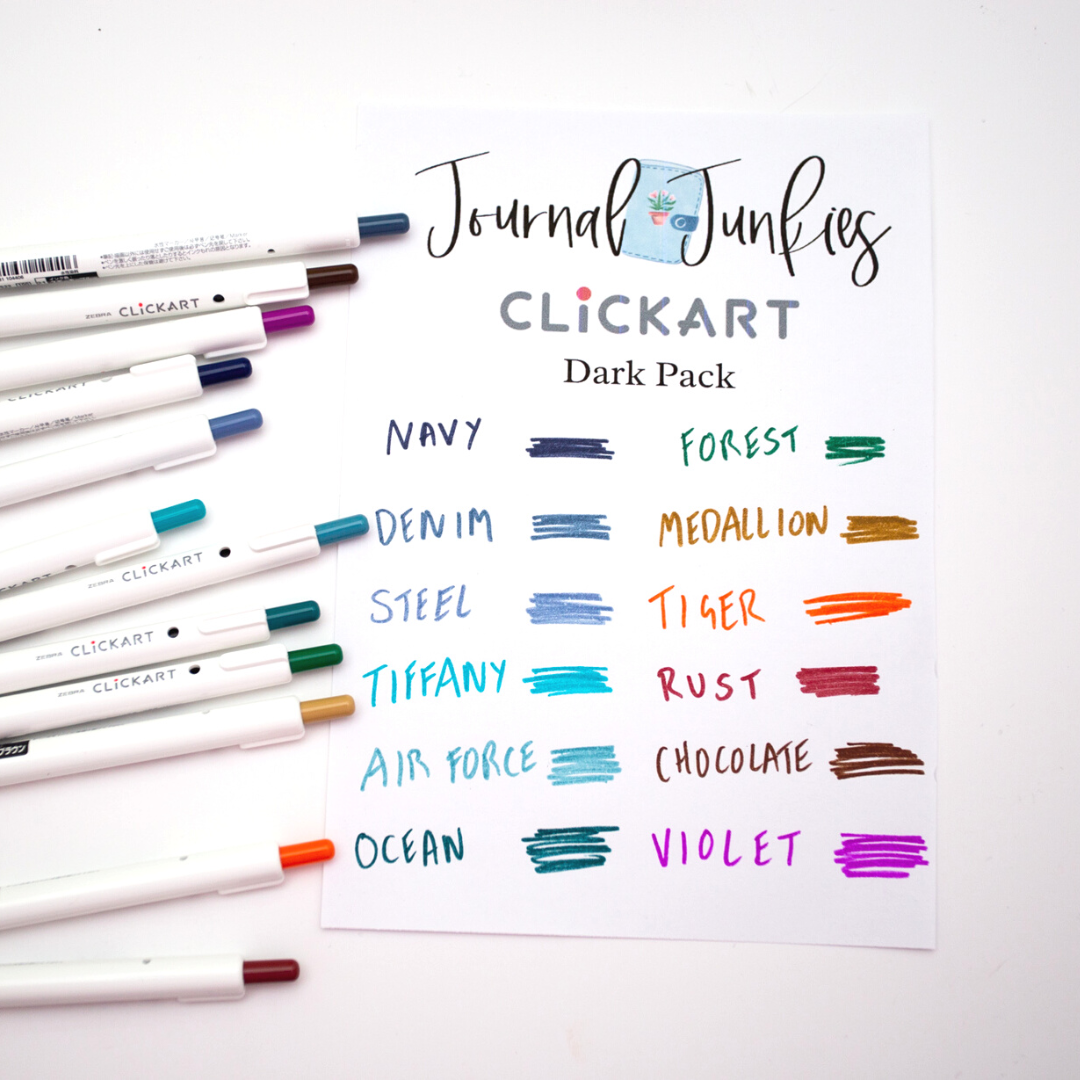 Journal Junkies
CLiCKART
Dark Pack
NAVY
FOREST
DENIM
MEDALLION
STEEL
TIGER
TIFFANY
RUST
AIR FORCE
CHOCOLATE
OCEAN
VIOLET
ZEBRA CLiCKART
CLICKART
ZEBRA CLiCKART
ZEBRA CLiCKART
ZEBRA CLiCKART
ブラウン